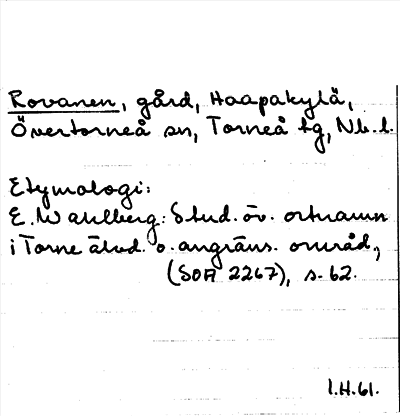 Rovanen, gård, Haapakylä,
Övertorneå sn, Torneå tg, Nb. l.
Etymologi:
E. Wahlberg: Stud. öv. ortnamn
i Torne älvd. o. angräns. områd,
(SOA 2267), s. 62.
I.H.61.